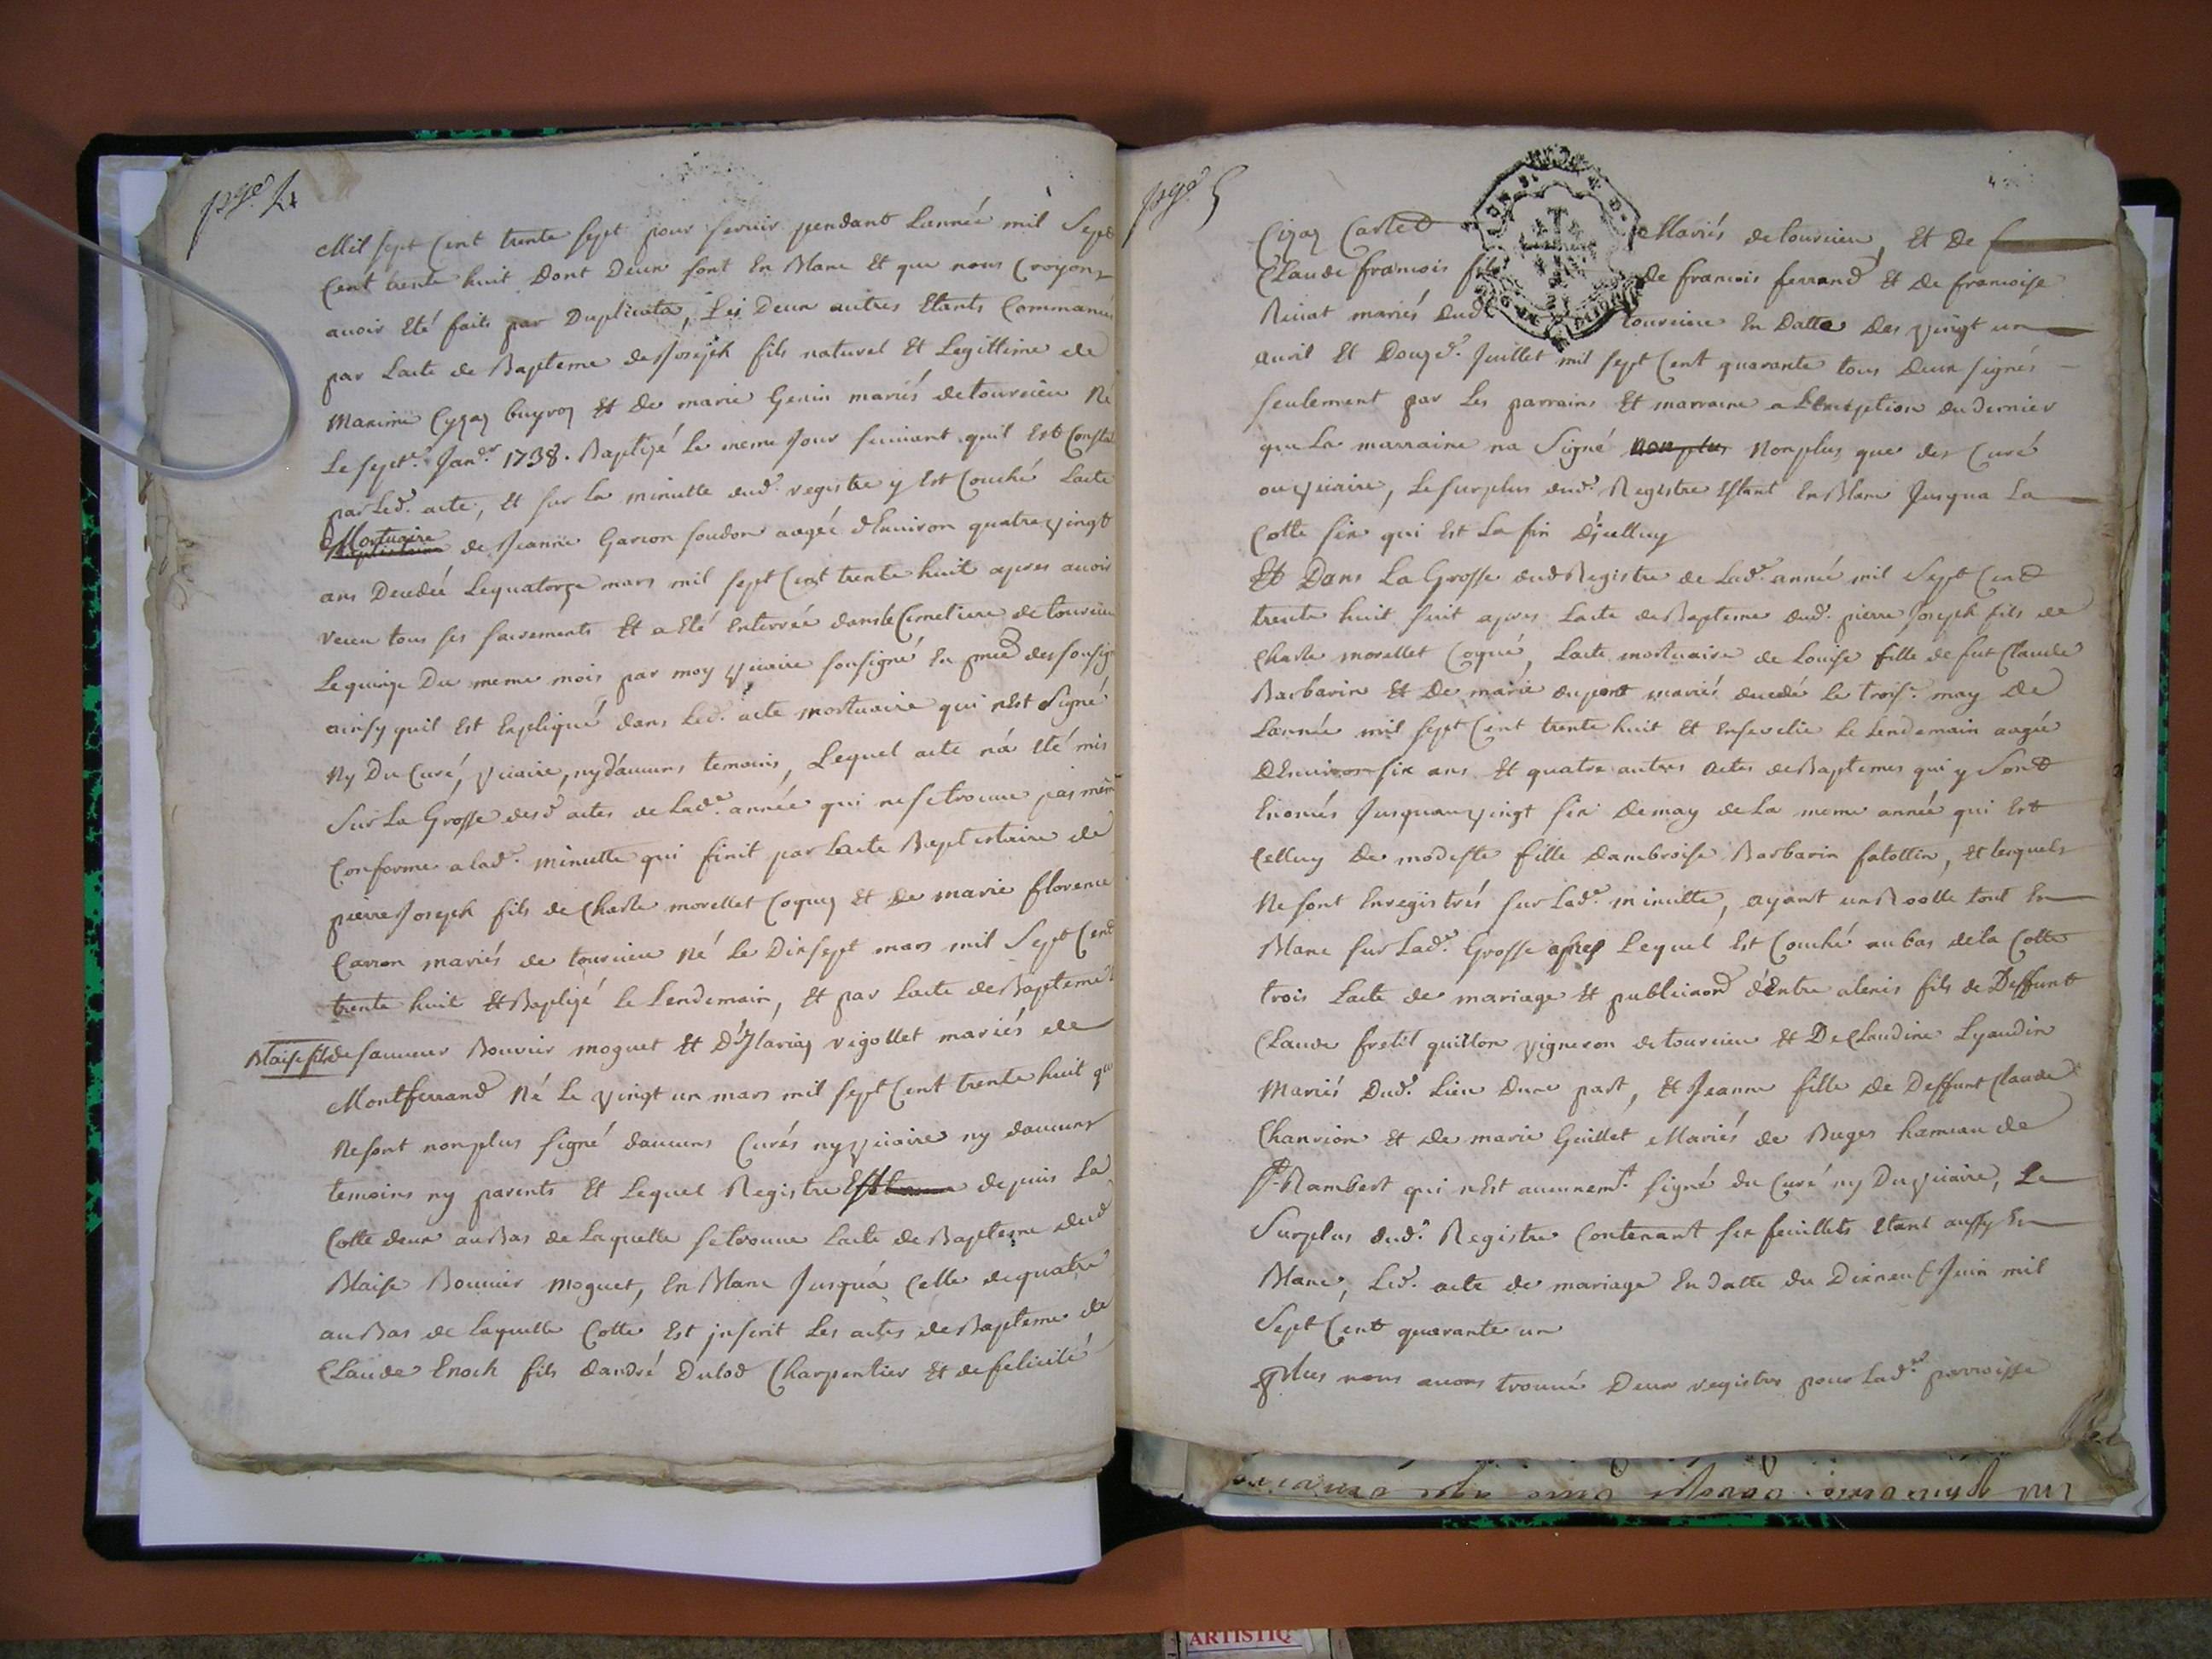 pge. 4
Mil sept Cent trente sept pour servir pendant Lannée mil Sept
Cent trente huit Dont Deux sont En Blanc Et que nous Croyons
avoir Eté faits par Duplicata, Les Deux autres Etants Commancés
par Lacte de Bapteme de Joseph fils naturel Et Legittime de
Maxime Cyzaz Guyroz Et de marie Genin mariés detourcieu Né
Le septe. Janer. 1738. Baptizé Le meme Jour suivant quil Est Constat
par Led. acte, Et sur La minutte dud. registre y Est Couché Lacte
Mortuaire
de Jeanne Garcon soudon aagée dEnviron quatre vingt
ans Decedée Lequatorze mars mil sept Cent trente huit apres avoir
receu tous ses sacrements Et a Eté Enterrée dansle Cimetiere de tourcieu
Lequinze Du meme mois par moy vicaire sousigné En pnce des sousig
ainsy quil Est Expliqué dans Led. acte mortuaire qui nEst Signé
Ny Du Curé, vicaire, ny dáucuns temoins, Lequel acte ná Eté mis
Sur La Grosse desd actes de Lade. année qui nesetrouve pas même
Conforme a lade. minutte qui finit par Lacte Baptistaire de
pierre Joseph fils de Charle morellet Coquaz Et De marie florence
Carron mariés de tourcieu Né Le Dixsept mars mil Sept Cent
trente huit Et Baptizé Le Lendemain, Et par Lacte de Bapteme
Blaise fils de sauveur Bouvier moguet Et D'Ylariaz rigollet mariés de
Montferrand Né Le vingt un mars mil sept Cent trente huit qui
Ne sont nonplus signé daucuns Curés ny vicaire ny daucuns
temoins ny parents Et Lequel Registre Est depuis La
Cotte deux auBas de Laquelle setrouve Lacte de Bapteme dud
Blaise Bouvier moguet, En Blanc Jusquá Celle dequatre
auBas de Laquelle Cotte Est inscrit Les actes deBapteme de
Claude Enoch fils dandré Dulod Charpentier Et de felicité
pge. 5
Cizaz Carled Mariés de tourcieu, Et De
Claude francois fils de francois ferrand Et De francoise
Reinat mariés dud. tourcieu En Datte Des vingt un
avril Et Douze. Juillet mil sept Cent quarante tous Deux signés
seulement par Les parrains Et marraine a LExeption du dernier
que La marraine na Signé non plus Nonplus que des Curé
ou vicaire, Le surplus dud. Registre Estant En Blanc Jusqua La
Cotte six qui Est La fin Djcelluy
Et Dans La Grosse dud Registre de Lade. année mil Sept Cent
trente huit suit apres Lacte de Bapteme dud. pierre Joseph fils de
Charle morellet Coqué, Lacte mortuaire de Louise fille de fut Claude
Barbarin Et De marie dupont mariés decedé Le troise. may De
Lannée mil sept Cent trente huit Et Ensevelie Le Lendemain aagée
DEnviron six ans Et quatre autres actes de Baptemes qui y Sont
Enoncés Jusquau vingt six De may de La meme année qui Est
Celluy De modeste fille dambroise Barbarin fatottin, Et lesquels
Ne sont Enregistrés sur Lade. minutte, ayant un Rolle tout En
Blanc sur Lade. Grosse apres Lequel Est Couché au bas de la Cotte
trois Lacte de mariage Et publicaon d'Entre alexis fils de Deffunt
Claude fretit quillon vigneron detourcieu Et De Claudine Lyaudin
Mariés Dud. Lieu Dune part, Et Jeanne fille De Deffunt Claude
Chanrion Et de marie Guillet Mariés de Buges hameau de
St. Rambert qui nEst aucunemt. signé du Curé ny Du vicaire, Le
Surplus dud. Registre Contenant six feuillets Etant aussy En
Blanc, Led. acte de mariage En datte du Dixneuf Juin mil
Sept Cent quarante un
plus nous avons trouvé Deux registres pour Lade. parroisse
ARTISTIQ